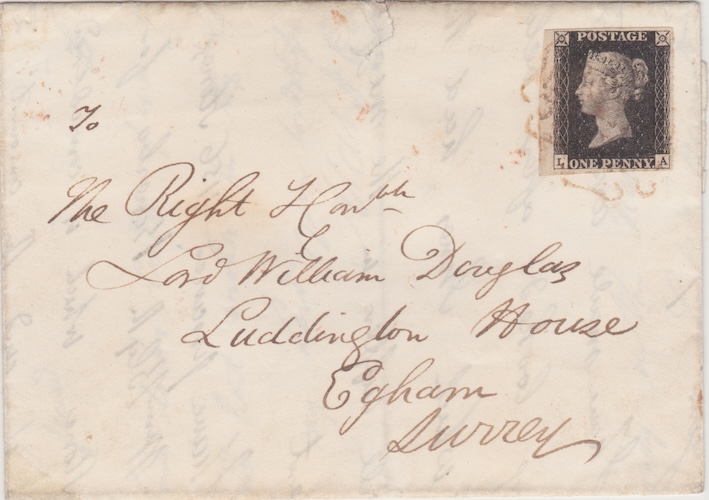 POSTAGE
L A
ONE PENNY
To
The Right Honble
Lord William Douglas
Luddington House
Egham
Surrey